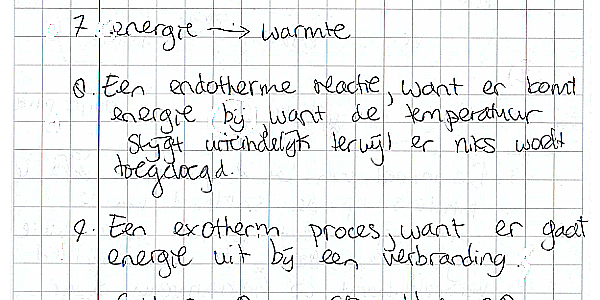 7. energie → warmte
8. Een endotherme reactie, want er komt
energie bij want de temperatuur
stijgt uiteindelijk terwijl er niks wordt
toegdoegd.
9. Een exotherm proces, want er gaat
energie uit bij een verbranding.